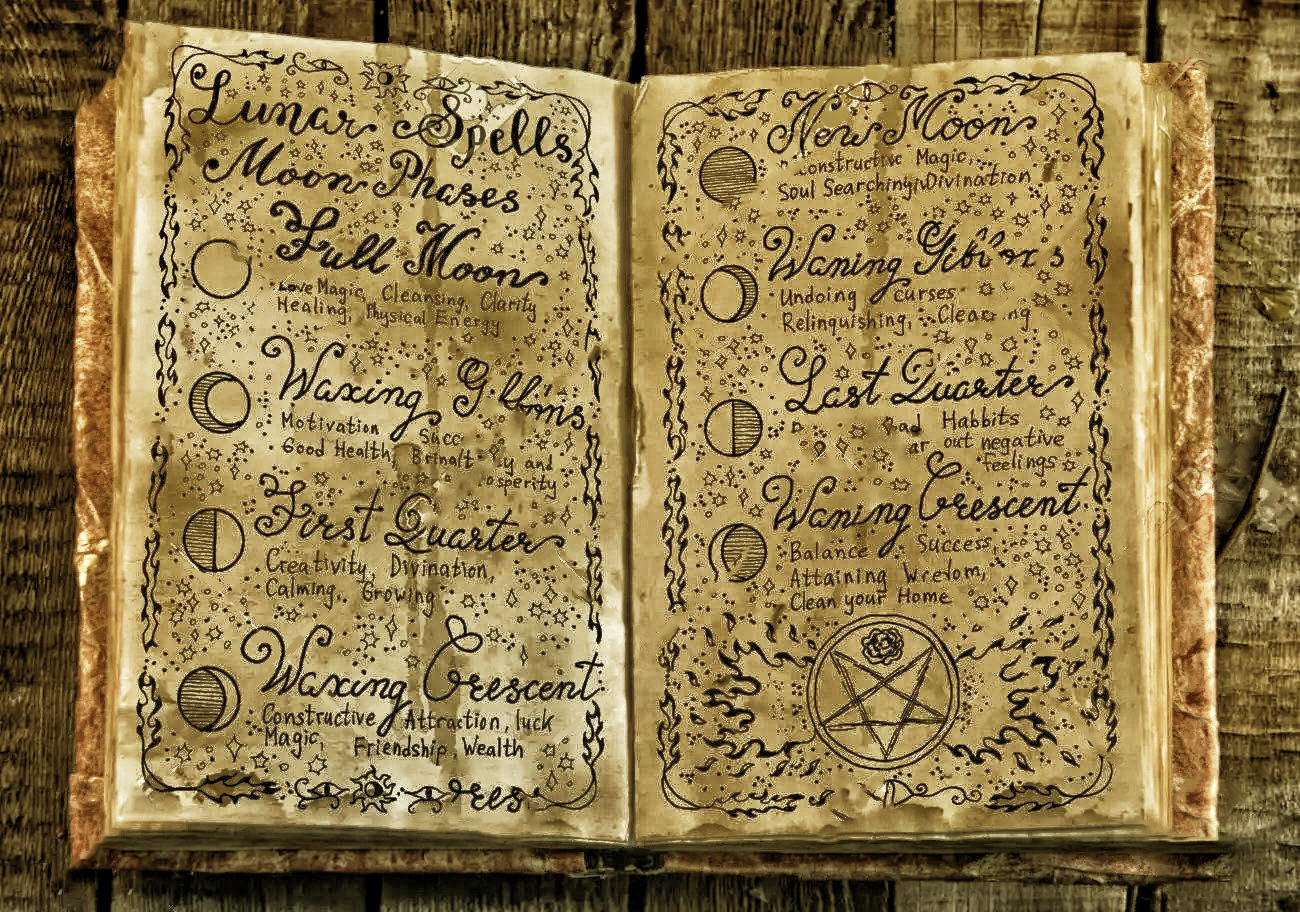 Lunar Spells
Moon Phases
Full Moon
Love Magic, Cleansing, Clarity
Healing, Physical Energy
Waxing
Motivation
Good Health, and
First Quarter
Creativity, Divination,
Calming, Growing
Waxing Crescent
Constructive Attraction, luck
Magic, Friendship, Wealth
New Moon
Constructive Magic,
Soul Searching, Divination
Waning
Undoing curses
Relinquishing,
Last Quarter
Habbits
out negative
feelings
Waning Crescent
Balance Success,
Attaining
Clean your Home